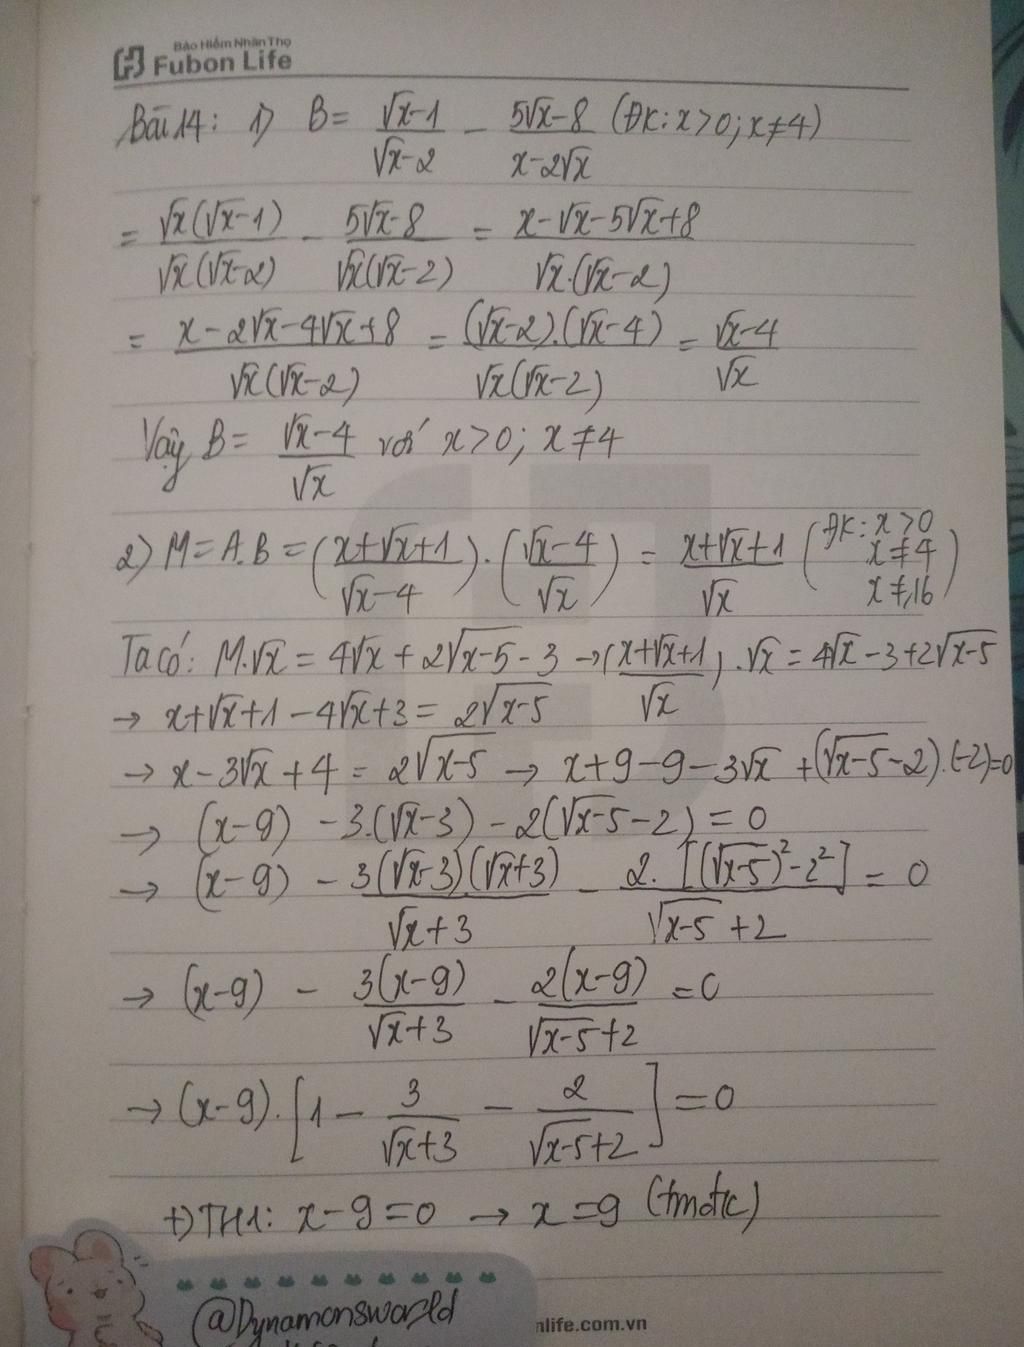 Bảo Hiểm Nhân Thọ
Fubon Life
Bài 14: 1) B = (√x-1)/(√x-2) - (5√x-8)/(x-2√x) (ĐK: x>0; x≠4)
= √x(√x-1)/√x(√x-2) - (5√x-8)/√x(√x-2) = (x-√x-5√x+8)/√x.(√x-2)
= (x-2√x-4√x+8)/√x(√x-2) = (√x-2).(√x-4)/√x(√x-2) = (√x-4)/√x
Vậy B = (√x-4)/√x với x>0; x≠4
2) M = A.B = ((x+√x+1)/(√x-4)).((√x-4)/√x) = (x+√x+1)/√x (ĐK: x>0 x≠4 x≠16)
Ta có: M.√x = 4√x + 2√(x-5) - 3 → ((x+√x+1)/√x).√x = 4√x - 3 + 2√(x-5)
→ x+√x+1-4√x+3 = 2√(x-5)
→ x-3√x+4 = 2√(x-5) → x+9-9-3√x+(√(x-5)-2).(-2)=0
→ (x-9) - 3.(√x-3) - 2(√(x-5)-2) = 0
→ (x-9) - 3(√x-3)(√x+3)/(√x+3) - 2.[(√(x-5))²-2²]/(√(x-5)+2) = 0
→ (x-9) - 3(x-9)/(√x+3) - 2(x-9)/(√(x-5)+2) = 0
→ (x-9).[1 - 3/(√x+3) - 2/(√(x-5)+2)] = 0
+) TH1: x-9=0 → x=9 (tmđk)
@Dynamonsworld
nlife.com.vn